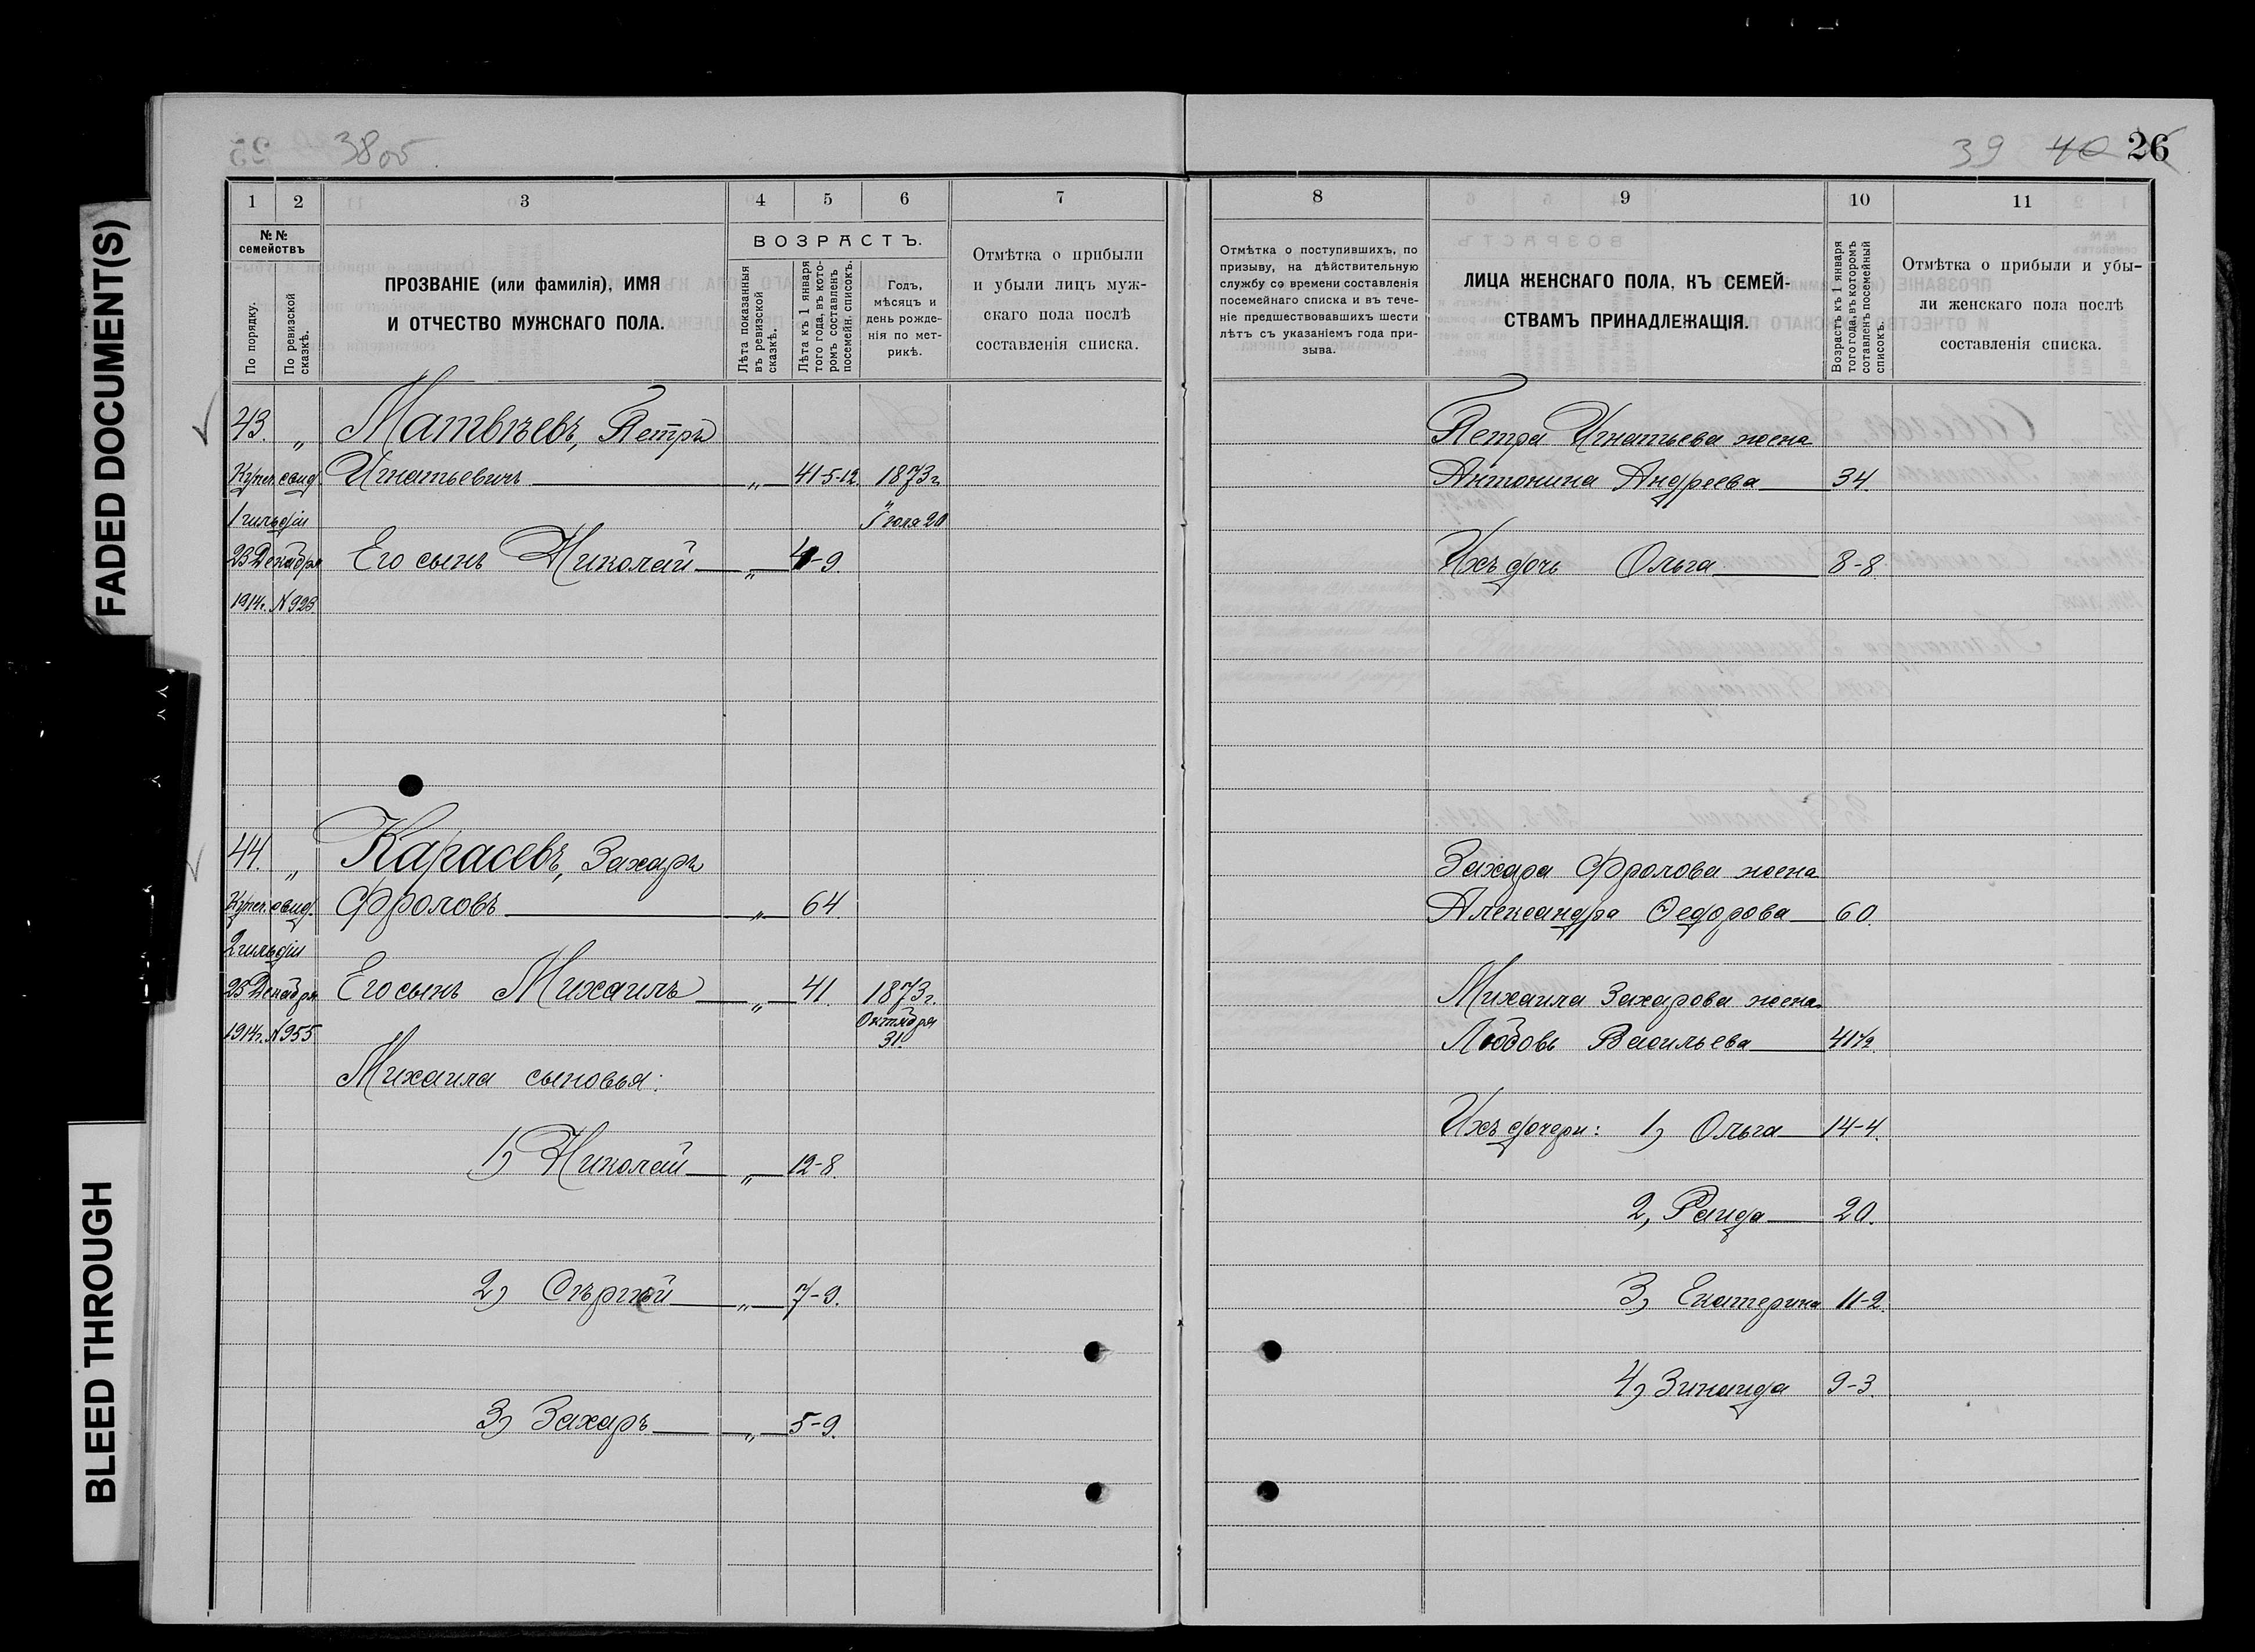 FADED DOCUMENT(S)
BLEED THROUGH
38 об.
39 40 26
1 2 3 4 5 6 7
№№ семействъ
По порядку.
По ревизской сказкѣ.
ПРОЗВАНІЕ (или фамилія), ИМЯ
И ОТЧЕСТВО МУЖСКАГО ПОЛА.
ВОЗРАСТЪ.
Лѣта показанныя въ ревизской сказкѣ.
Лѣта къ 1 января того года, въ которомъ составленъ посемейн. списокъ.
Годъ,
мѣсяцъ и
день рожде-
нія по мет-
рикѣ.
Отмѣтка о прибыли
и убыли лицъ муж-
скаго пола послѣ
составленія списка.
43. „ Матвѣевъ, Петръ
Купеч. свид. Игнатьевичъ „ 41-5-12. 1873 г.
1 гильдіи Іюля 20
23 Декабря Его сынъ Николай „ 4-9.
1914 г. № 923.
44. „ Карасевъ, Захаръ
Купеч. свид. Фроловъ „ 64
2 гильдіи
25 Декабря Его сынъ Михаилъ „ 41. 1873 г.
Октября
1914 г. № 955 31.
Михаила сыновья:
1) Николай „ 12-8.
2) Сергѣй „ 7-9.
3) Захаръ „ 5-9.
8 9 10 11
Отмѣтка о поступившихъ, по
призыву, на дѣйствительную
службу со времени составленія
посемейнаго списка и въ тече-
ніе предшествовавшихъ шести
лѣтъ съ указаніемъ года при-
зыва.
ЛИЦА ЖЕНСКАГО ПОЛА, КЪ СЕМЕЙ-
СТВАМЪ ПРИНАДЛЕЖАЩІЯ.
Возрастъ къ 1 января того года, въ которомъ сотавленъ посемейный списокъ.
Отмѣтка о прибыли и убы-
ли женскаго пола послѣ
составленія списка.
Петра Игнатьева жена
Антонина Андреева 34.
Ихъ дочь Ольга 8-8.
Захара Фролова жена
Александра Федорова 60.
Михаила Захарова жена
Любовь Васильева 41½
Ихъ дочери: 1) Ольга 14-4.
2, Раида 20.
3) Екатерина 11-2.
4) Зинаида 9-3.